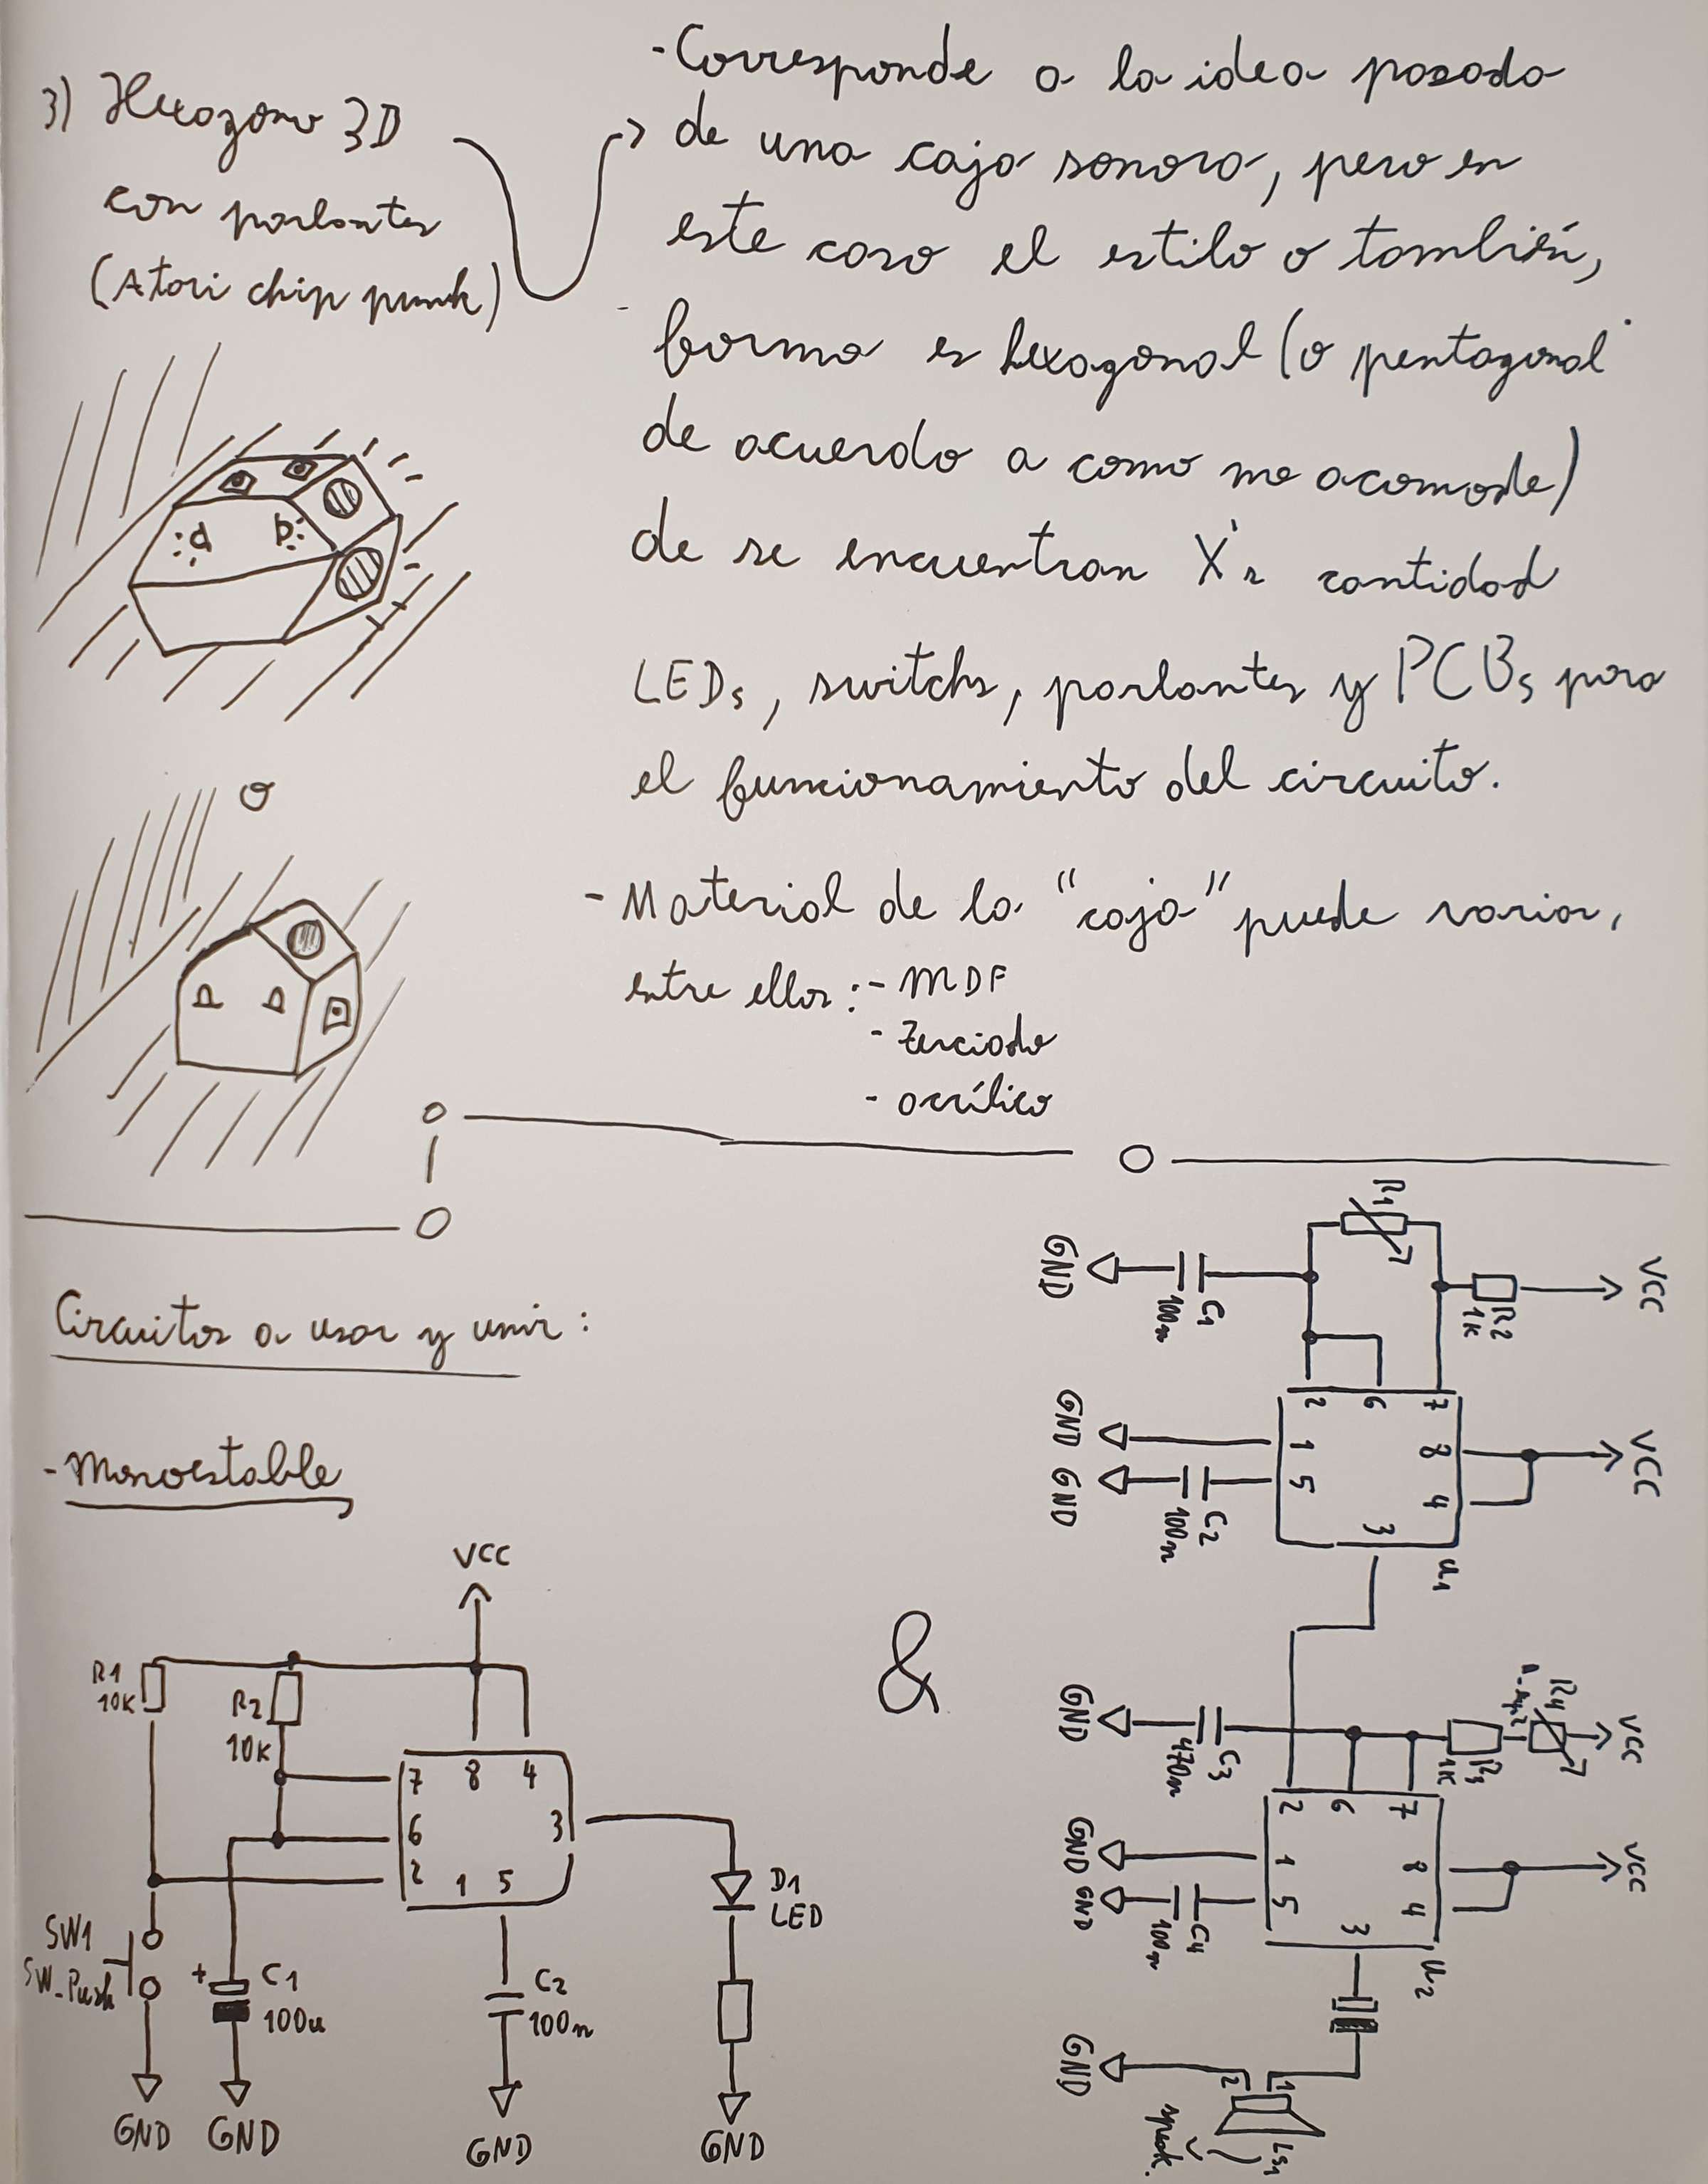 3) Hexagono 3D
con parlantes
(Atari chip punk)
- Corresponde a la idea pasada
de una caja sonora, pero en
este caso el estilo o también,
forma es hexagonal (o pentagonal
de acuerdo a como me acomode)
de se encuentran X's cantidad
LEDs, switchs, parlantes y PCBs para
el funcionamiento del circuito.
o
- Material de la "caja" puede variar,
entre ellos: - MDF
- Terciado
- acrílico
Circuitos a usar y unir:
- Monoestable
VCC
R1
10K
R2
10K
7 8 4
6 3
2 1 5
SW1
SW_Push
+ C1
100u
C2
100n
D1
LED
GND GND GND GND
&
R1
VCC
R2
1K
GND
C1
100n
2 6 7
1 8
5 4
3
VCC
GND
GND
C2
100n
U1
GND
C3
470n
R3
1K
R4
VCC
2 6 7
1 8
5 4
3
VCC
GND
GND
C4
100n
U2
GND
2 1
LS1
speak.